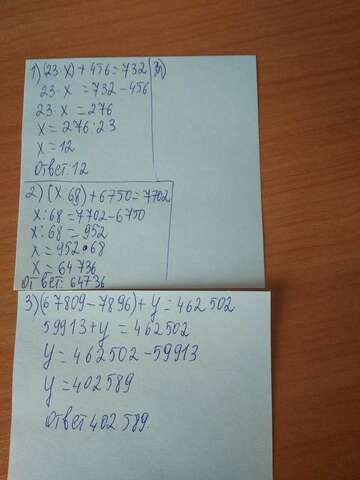 1)(23·x)+456=732
23·x =732-456
23·x=276
x=276:23
x=12
Ответ:12
2)(x:68)+6750=7702
x:68=7702-6750
x:68=952
x=952·68
x=64736
Ответ:64736
3)(67809-7896)+y=462502
59913+y=462502
y=462502-59913
y=402589
Ответ 402589.